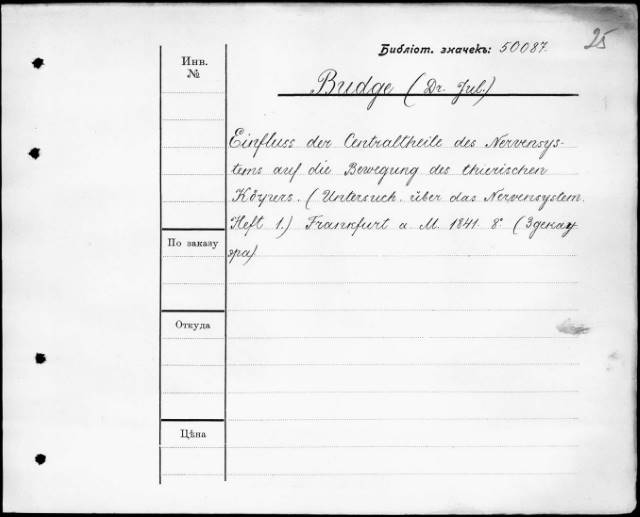 Библіот. значекъ: 50087.
25
Инв.
№
Budge (Dr. Jul.)
Einfluss der Centraltheile des Nervensys-
tems auf die Bewegung des thierischen
Körpers. (Untersuch. über das Nervensystem.
Heft 1.) Frankfurt a M. 1841. 8°.
По заказу
Откуда
Цѣна